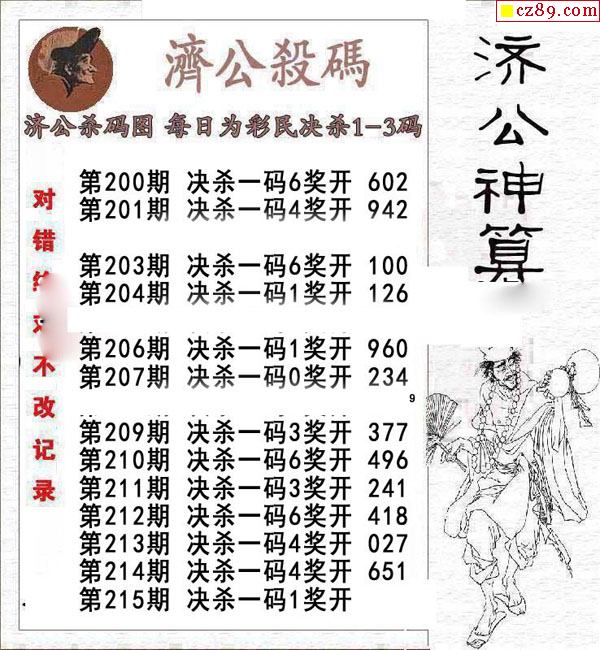 cz89.com
濟公殺碼
济公杀码图 每日为彩民决杀1-3码
第200期 决杀一码6奖开 602
第201期 决杀一码4奖开 942
第203期 决杀一码6奖开 100
第204期 决杀一码1奖开 126
第206期 决杀一码1奖开 960
第207期 决杀一码0奖开 234
9
第209期 决杀一码3奖开 377
第210期 决杀一码6奖开 496
第211期 决杀一码3奖开 241
第212期 决杀一码6奖开 418
第213期 决杀一码4奖开 027
第214期 决杀一码4奖开 651
第215期 决杀一码1奖开
对错
不改记录
济公神算